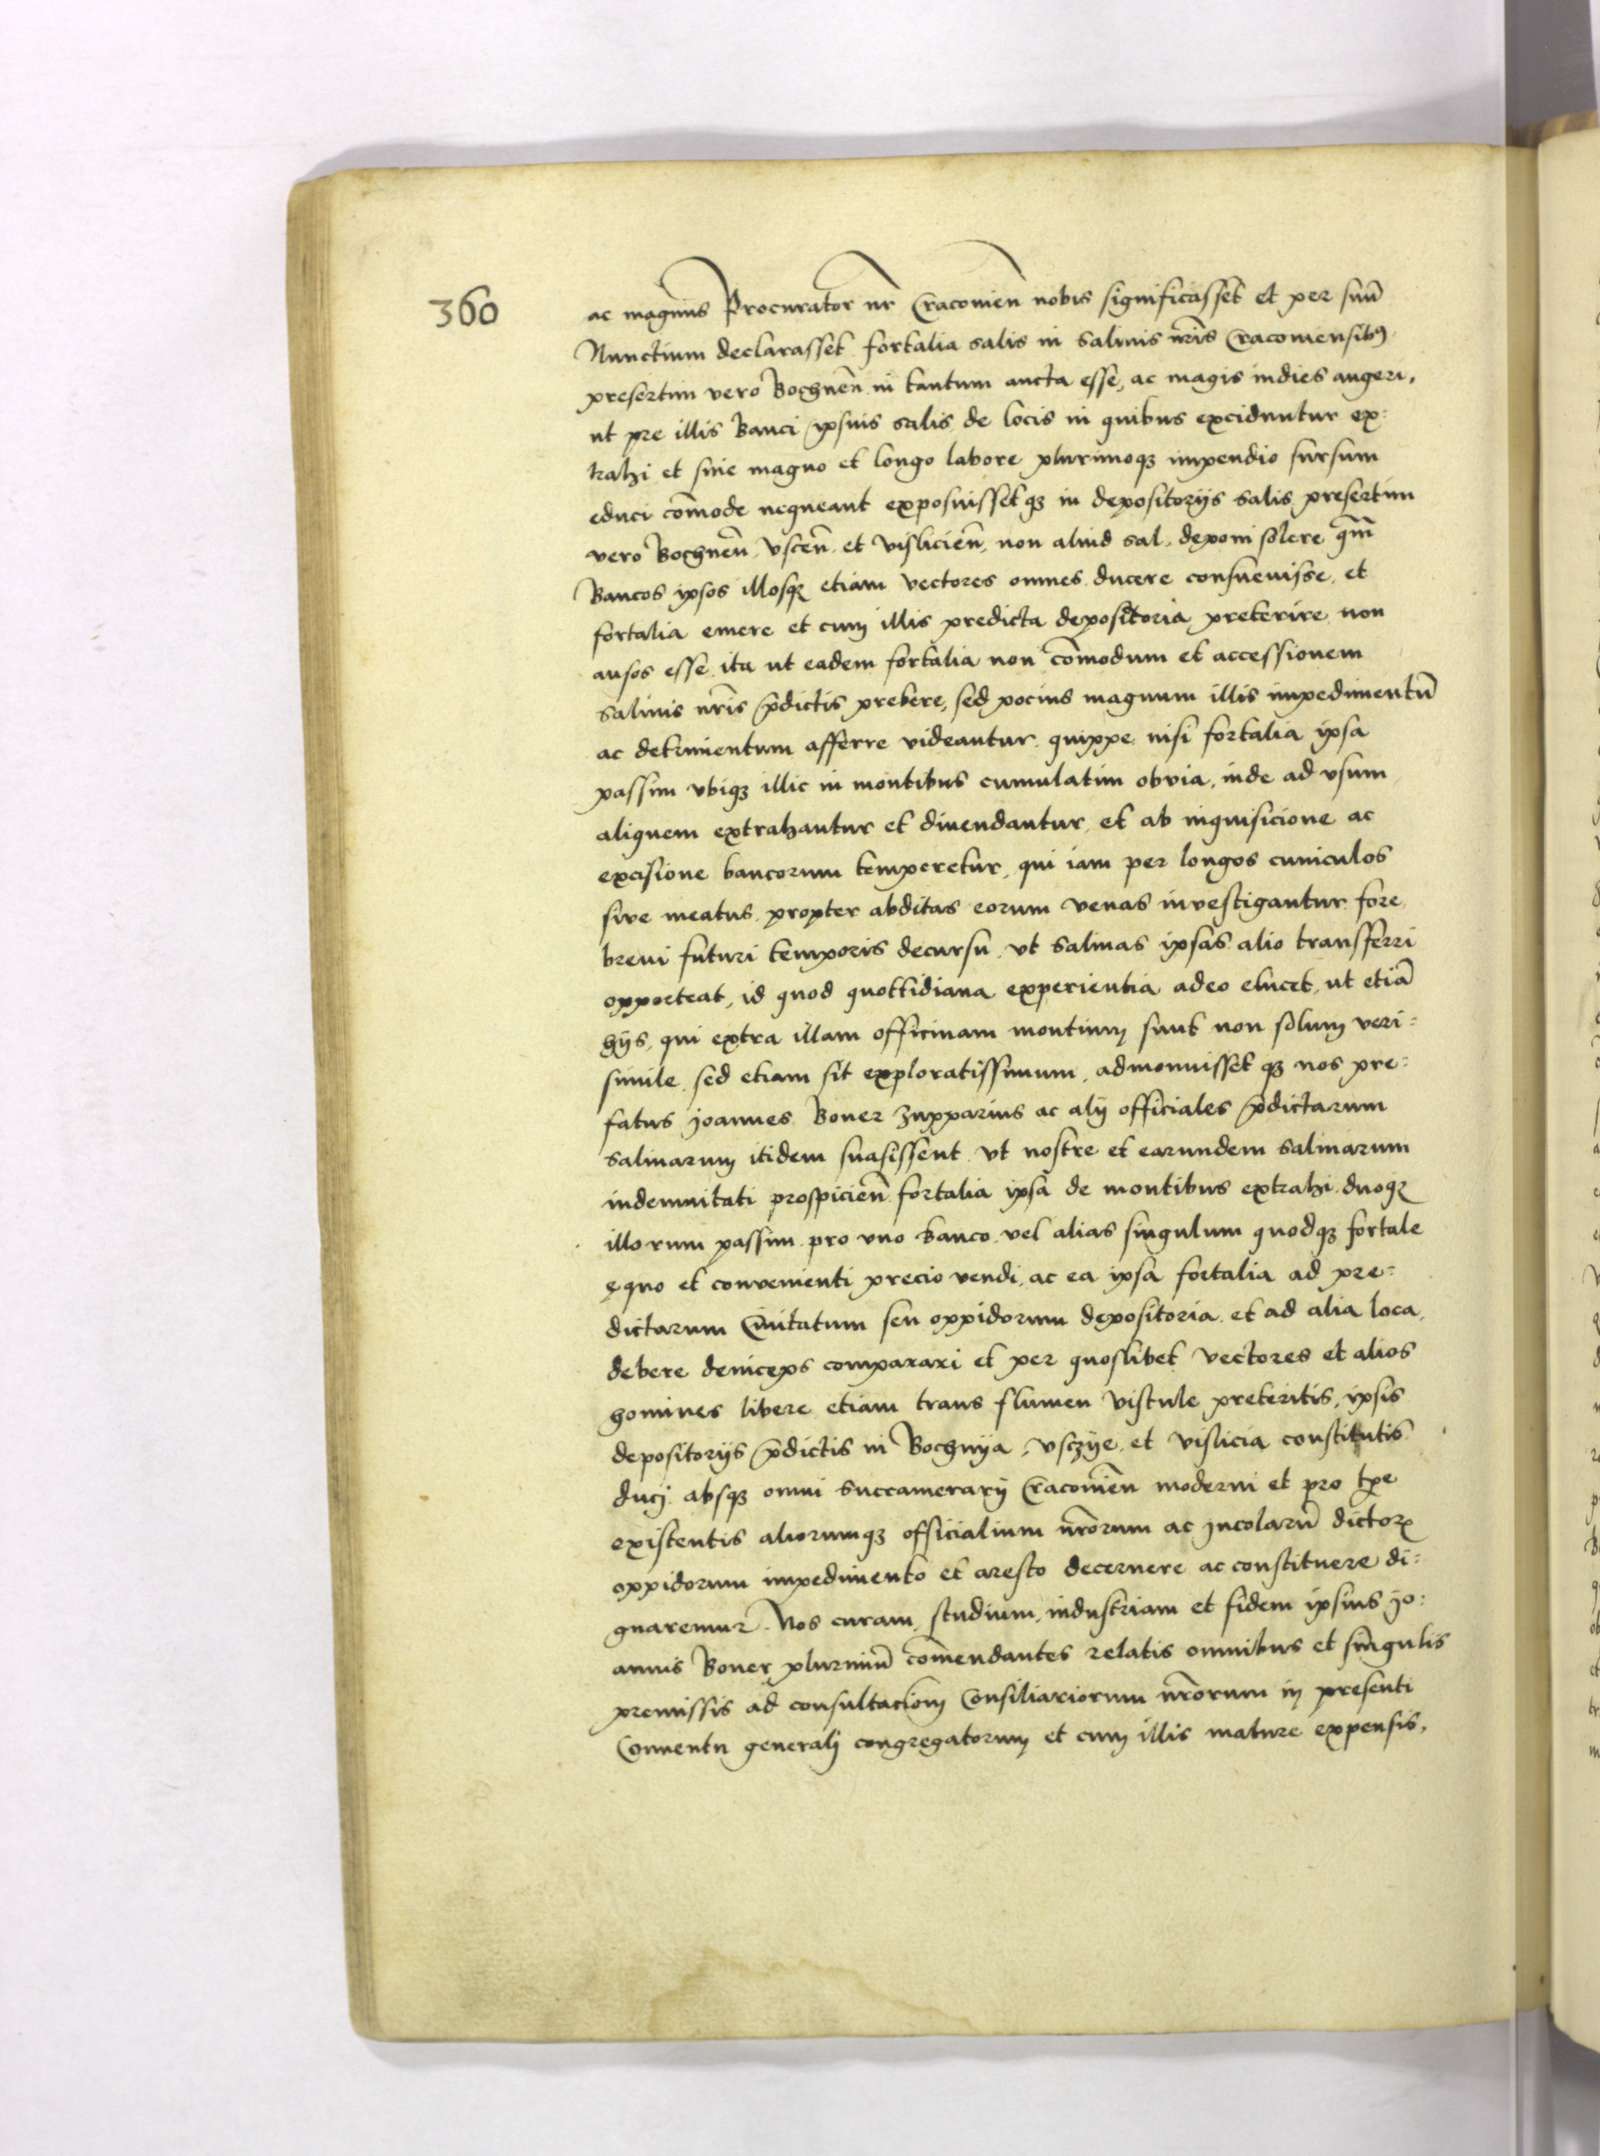 360
ac magnus Procurator nr̄ Cracovien̄ nobis significasset et per suū
Nunctium declarasset fortalia salis in Salinis nr̄is Cracoviensibꝰ
presertim vero Bochnen̄ in tantum aucta esse, ac magis indies augeri,
ut pre illis Banci ipsius salis de locis in quibus exciduntur ex:
trahi et sine magno et longo labore plurimoqꝫ impendio sursum
educi com̄ode nequeant exposuissetqꝫ in depositorijs salis presertim
vero Bochnen̄, Uscen̄ et Vislicien̄, non aliud sal, deponi solere qm̄
Bancos ipsos illosqꝫ etiam vectores omnes ducere consuevisse, et
fortalia emere et cum illis predicta depositoria preterire non
ausos esse ita ut eadem fortalia non com̄odum et accessionem
salinis nr̄is p̄dictis prebere, sed pocius magnum illis impedimentū
ac detrimentum afferre videantur quippe nisi fortalia ipsa
passim ubiqꝫ illic in montibus cumulatim obvia, inde ad usum
aliquem extrahantur et divendantur, et ab inquisicione ac
excisione bancorum temperetur, qui iam per longos cuniculos
sive meatus propter abditas eorum venas investigantur fore
brevi futuri temporis decursu, ut Salinas ipsas alio transferri
opporteat, id quod quottidiana experientia adeo elucet, ut etiā
hijs, qui extra illam officinam montium sunt non solum veri:
simile, sed etiam sit exploratissimum, admonuissetqꝫ nos pre:
fatus Joannes Boner Zupparius ac alij officiales p̄dictarum
Salinarum itidem suasissent ut nostre et earundem salinarum
indemnitati prospicien̄ fortalia ipsa de montibus extrahi duoqꝫ
illorum passim pro uno Banco vel alias singulum quodqꝫ fortale
ęquo et convenienti precio vendi, ac ea ipsa fortalia ad pre:
dictarum Civitatum seu oppidorum depositoria et ad alia loca,
debere deinceps comparari et per quoslibet vectores et alios
homines libere etiam trans flumen Vistule preteritis, ipsis
depositorijs p̄dictis in Bochnija, Usczije, et Vislicia constitutis
duci absqꝫ omni Succamerarij Cracovien̄ moderni et pro tp̄e
existentis aliorumqꝫ officialium nr̄orum ac Incolarū dictorꝝ
oppidorum impedimento et aresto decernere ac constituere di:
gnaremur. Nos curam, studium, industriam et fidem ipsius Jo:
annis Boner plurimū com̄endantes relatis omnibus et singulis
premissis ad consultaciom̄ Consiliariorum nr̄orum in presenti
Conventu generali congregatorum et cum illis mature expensis,